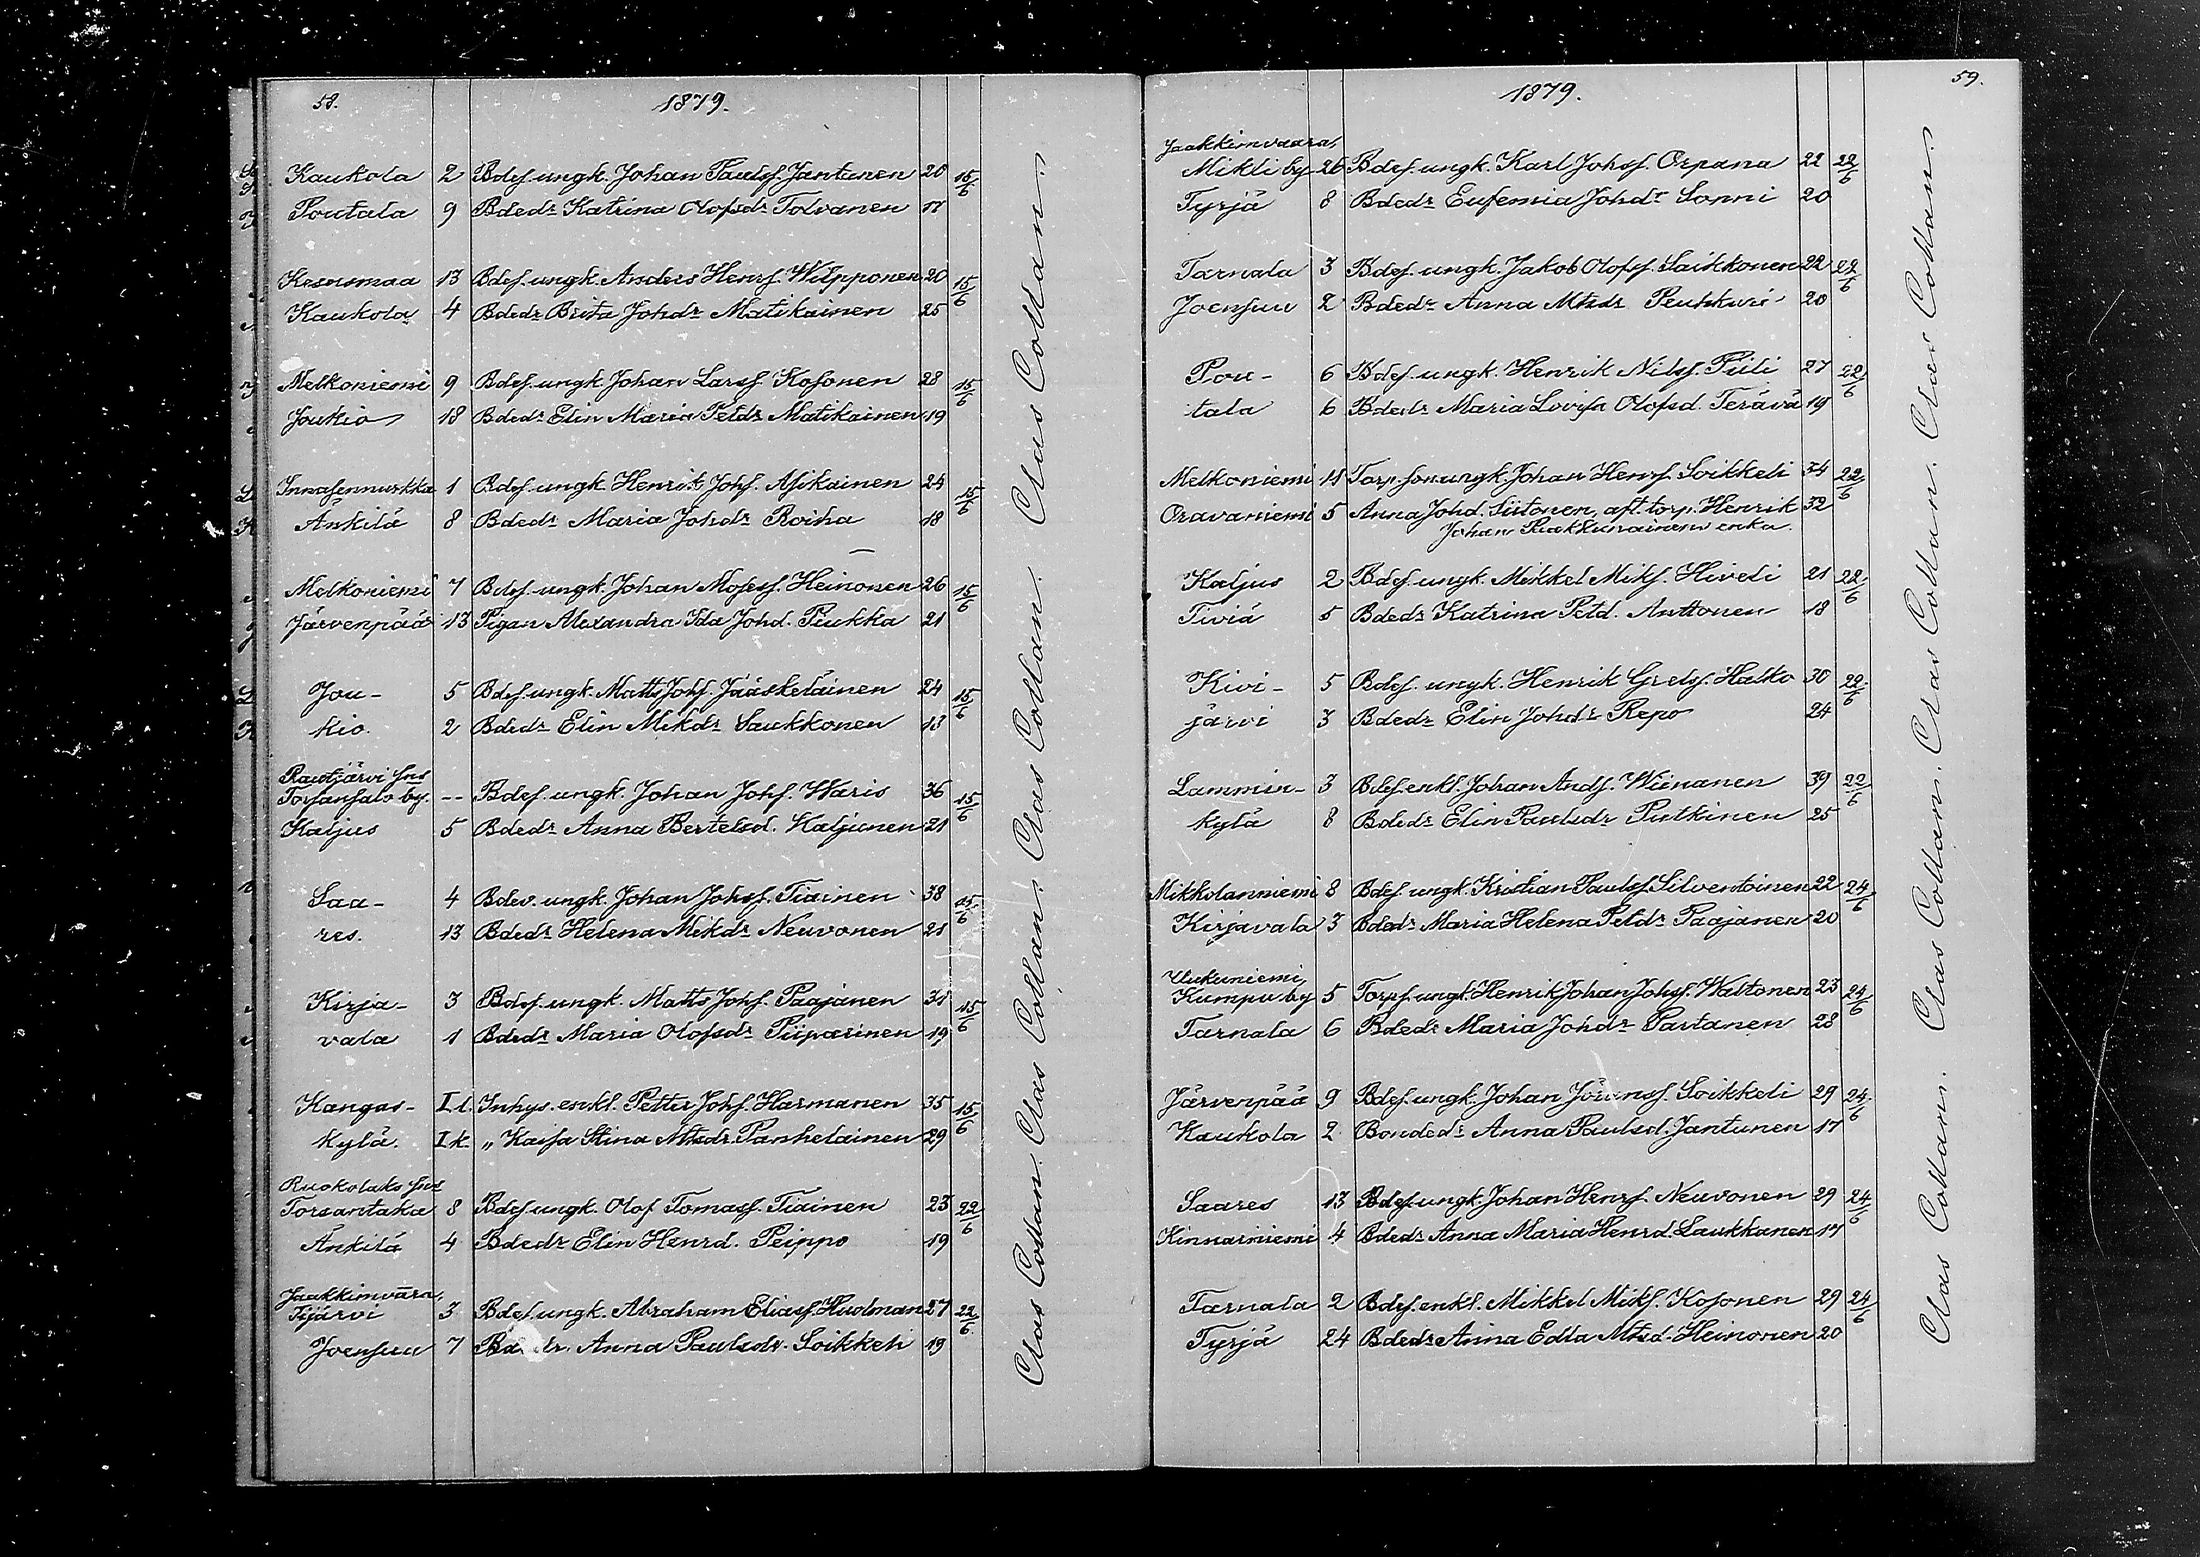 58.
1879.
Kaukola 2 Bdes. ungk. Johan Paulss. Jantunen 20 15/6
Poutala 9 Bdedr Katrina Olofsdr Tolvanen 17
Kesusmaa 13 Bdes. ungk. Anders Henrs. Wilpponen 20 15/6
Kaukola 4 Bdedr Brita Johdr Matikainen 25
Melkoniemi 9 Bdes. ungk. Johan Larss. Kosonen 28 15/6
Joukio 18 Bdedr Elin Maria Petdr Matikainen 19
Innasennurkka 1 Bdes. ungk. Henrik Johs. Asikainen 24 15/6
Änkilä 8 Bdedr Maria Johdr Roiha 18
Melkoniemi 7 Bdes. ungk. Johan Mosess. Heinonen 26 15/6
Järvenpää 13 Pigan Alexandra Ida Johd. Piukka 21
Jou- 5 Bdes. ungk. Matts Johs. Jääskeläinen 24 15/6
kio. 2 Bdedr Elin Mikdr Saukkonen
Rautjärvi sns
Torsansalo by. -- Bdes. ungk. Johan Johs. Waris 36 15/6
Kaljus 5 Bdedr Anna Bertelsd. Kaljunen 21
Saa- 4 Bdev. ungk. Johan Johss. Tiainen 38 15/6
res. 13 Bdedr Helena Mikdr Neuvonen 21
Kirja- 3 Bdes. ungk. Matts Johs. Paajanen 31 15/6
vala 1 Bdedr Maria Olofsdr Piiparinen 19
Kangas- I l. Inhys. enkl. Petter Johs. Harmanen 35 15/6
kylä. I k. „ Kaisa Stina Mtsdr Panhelainen 29
Ruokolaks sns
Torsantaka 8 Bdes. ungk. Olof Tomass. Tiainen 23 22/6
Änkilä 4 Bdedr Elin Henrd. Peippo 19
Jaakkimvara,
Iijärvi 3 Bdes. ungk. Abraham Eliass. Huolman 27 22/6
Joensuu 7 Anna Paulsdr. Soikkeli 19
Clas Collan. Clas Collan. Clas Collan. Clas Collan. Clas Collan.
59.
1879.
Jaakkimvaara,
Mikli by 26 Bdes. ungk. Karl Johss. Orpana 22 22/6
Tyrjä 8 Bdedr Eufemia Johdr Sonni 20
Tarnala 3 Bdes. ungk. Jakob Olofss. Saikkonen 22 22/6
Joensuu 2 Bdedr Anna Mtsdr Peuhkuri 20
Pou- 6 Bdes. ungk. Henrik Nilss. Piili 27 22/6
tala 6 Bdedr Maria Lovisa Olofsd. Terävä 19
Melkoniemi 11 Torp. son ungk. Johan Henrs. Soikkeli 34 22/6
Oravaniemi 5 Anna Johd. Siitonen, aft. torp. Henrik 32
Johan Puakkunainens enka.
Kaljus 2 Bdes. ungk. Mikkel Miks. Hiveli 21 22/6
Tiviä 5 Bdedr Katrina Petd. Anttonen 18
Kivi- 5 Bdes. ungk. Henrik Grelss. Halko 30 22/6
järvi 3 Bdedr Elin Johdr Repo 24
Lammin- 3 Bdes. enkl. Johan Ands. Wiinanen 39 22/6
kylä 8 Bdedr Elin Paulsdr Putkinen 25
Mikkolanniemi 8 Bdes. ungk. Kristian Paulss. Silventoinen 22 24/6
Kirjavala 3 Bdedr Maria Helena Petdr Paajanen 20
Uukuniemi,
Kumpu by 5 Torps. ungk. Henrik Johan Johss. Waltonen 23 24/6
Tarnala 6 Bdedr Maria Johdr Partanen 28
Järvenpää 9 Bdes. ungk. Johan Jöranss. Soikkeli 29 24/6
Kaukola 2 Bondedr Anna Paulsd. Jantunen 17
Saares 13 Bdes. ungk. Johan Henrs. Neuvonen 29 24/6
Kinnarniemi 4 Bdedr Anna Maria Henrd. Laukkanen 17
Tarnala 2 Bdes. enkl. Mikkel Miks. Kosonen 29 24/6
Tyrjä 24 Bdedr Anna Edla Mtsd. Heinonen 20
Clas Collan. Clas Collan. Clas Collan. Clas Collan. Clas Collan.